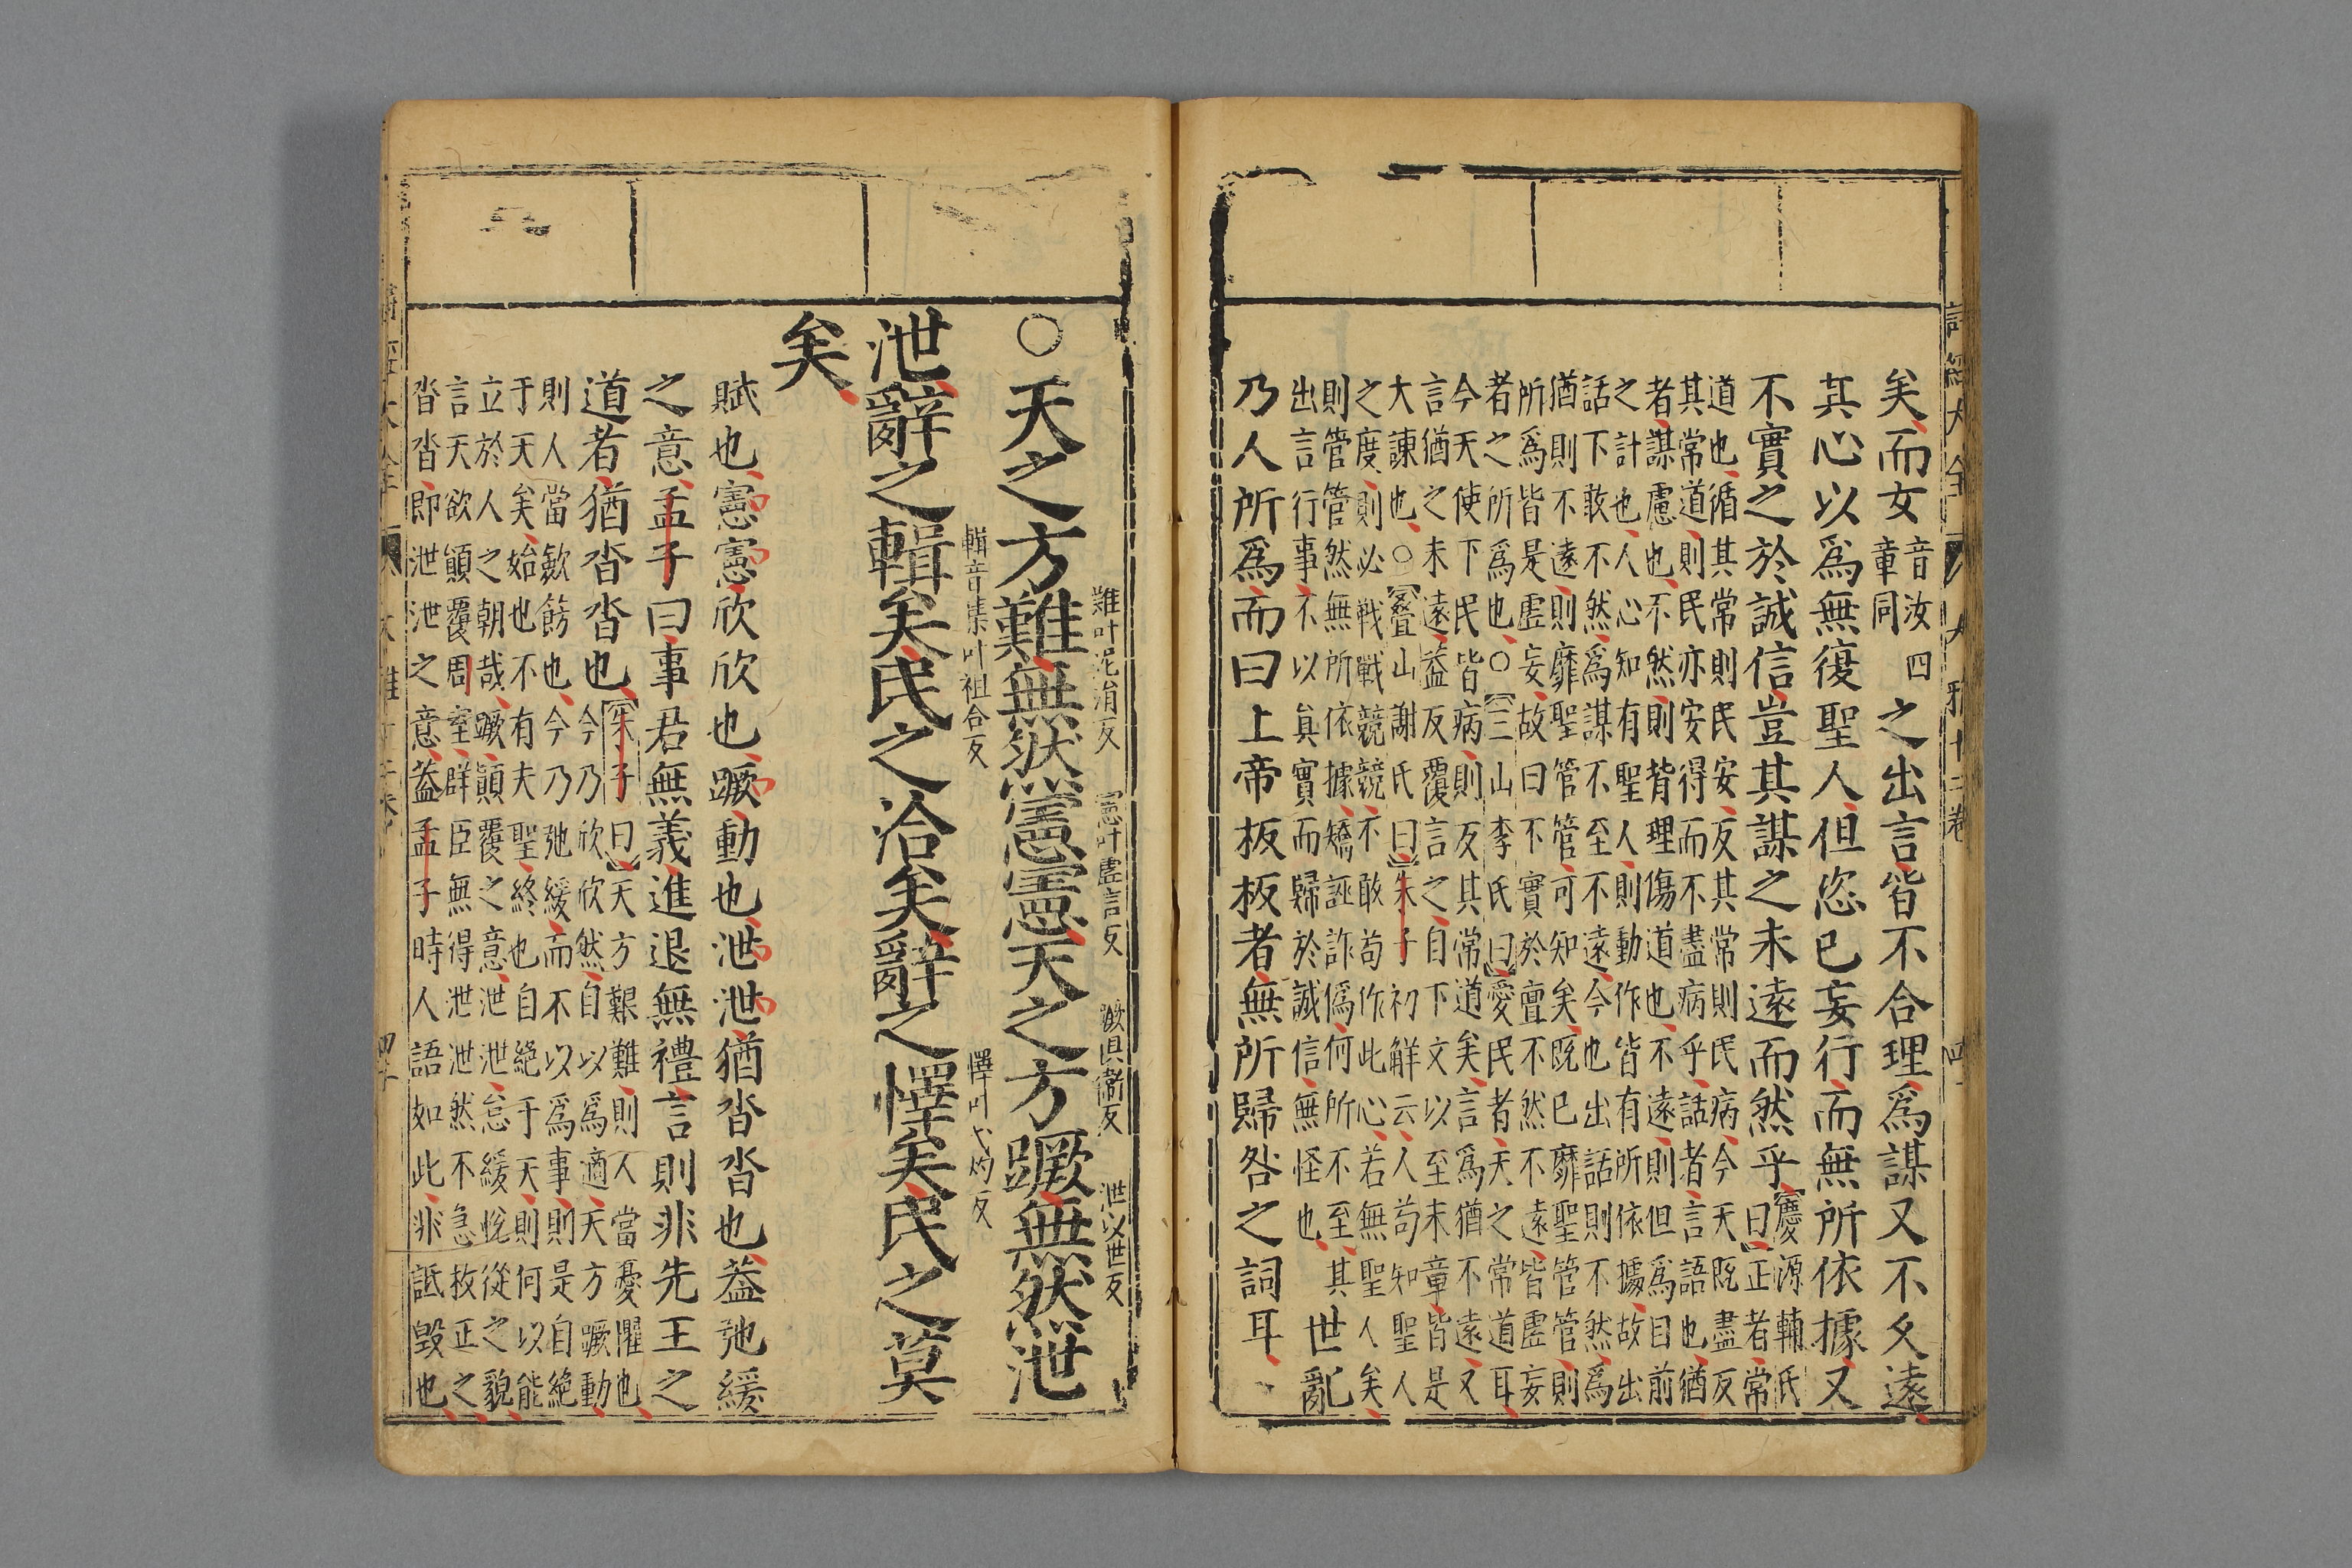 矣而女
音汝四
章同
之出言皆不合理爲謀又不久遠
其心以爲無復聖人但恣已妄行而無所依據又
不實之於誠信豈其謀之未遠而然乎
【慶源輔氏
曰】正者常
道也循其常則民安反其常則民病今天既盡反
其常道則民亦安得而不盡病乎話者言語也猶
者謀慮也不然則背理傷道也不遠則但爲目前
之計也人心知有聖人則動作皆有所依據故出
話下敢不然爲謀不至不遠今也出話則不然爲
猶則不遠則靡聖管管可知矣既已靡聖管管則
所爲皆是虛妄故曰不實於亶不然不遠皆虛妄
者之所爲也○【三山李氏曰】愛民者天之常道耳
今天使下民皆病則反其常道矣言爲猶不遠又
言猶之未遠葢反覆言之自下文以至末章皆是
大諫也○【叠山謝氏曰】朱子初解云人苟知聖人
之度則必戰戰競競不敢苟作此心若無聖人矣
則管管然無所依據矯誣詐僞何所不至其
出言行事不以眞實而歸於誠信無怪也
世亂
乃人所爲而曰上帝板板者無所歸咎之詞耳
難叶泥涓反 憲叶虛言反 蹶俱衞反 泄以世反
○天之方難無然憲憲天之方蹶無然泄
輯音集叶祖合反 懌叶弋灼反
泄辭之輯矣民之洽矣辭之懌矣民之莫
矣
賦也憲憲欣欣也蹶動也泄泄猶沓沓也葢弛緩
之意孟子曰事君無義進退無禮言則非先王之
道者猶沓沓也
【朱子曰】天方艱難則人當憂懼也
今乃欣欣然自以爲適天方蹶動
則人當欽飭也今乃弛緩而不以爲事則是自絶
于天矣始也不有夫聖終也自絶于天則何以能
立於人之朝哉蹶顛覆之意泄泄怠緩悅從之貌
言天欲顛覆周室群臣無得泄泄然不急救正之
沓沓即泄泄之意葢孟子時人語如此非詆毀也